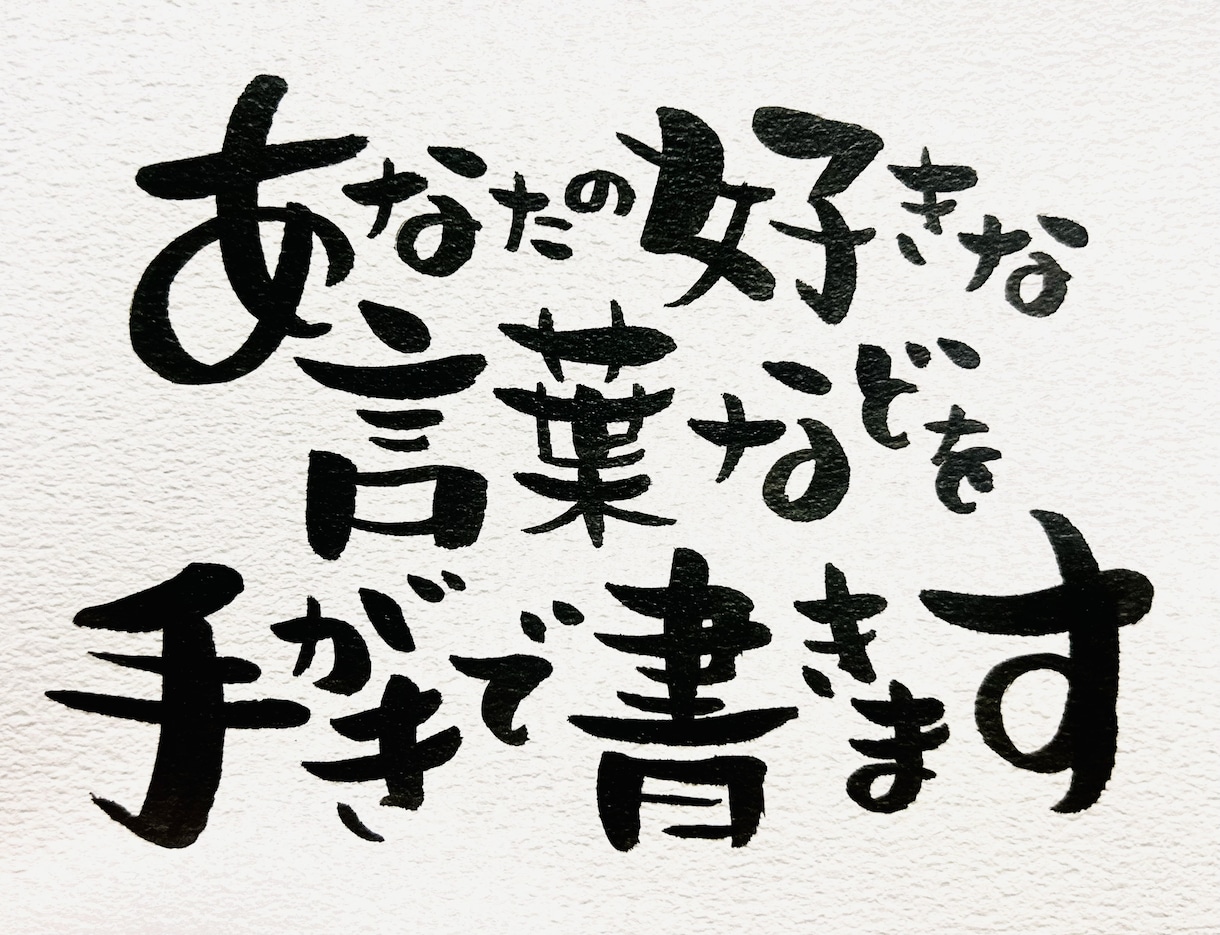 あなたの好きな
言葉などを
手がきで書きます